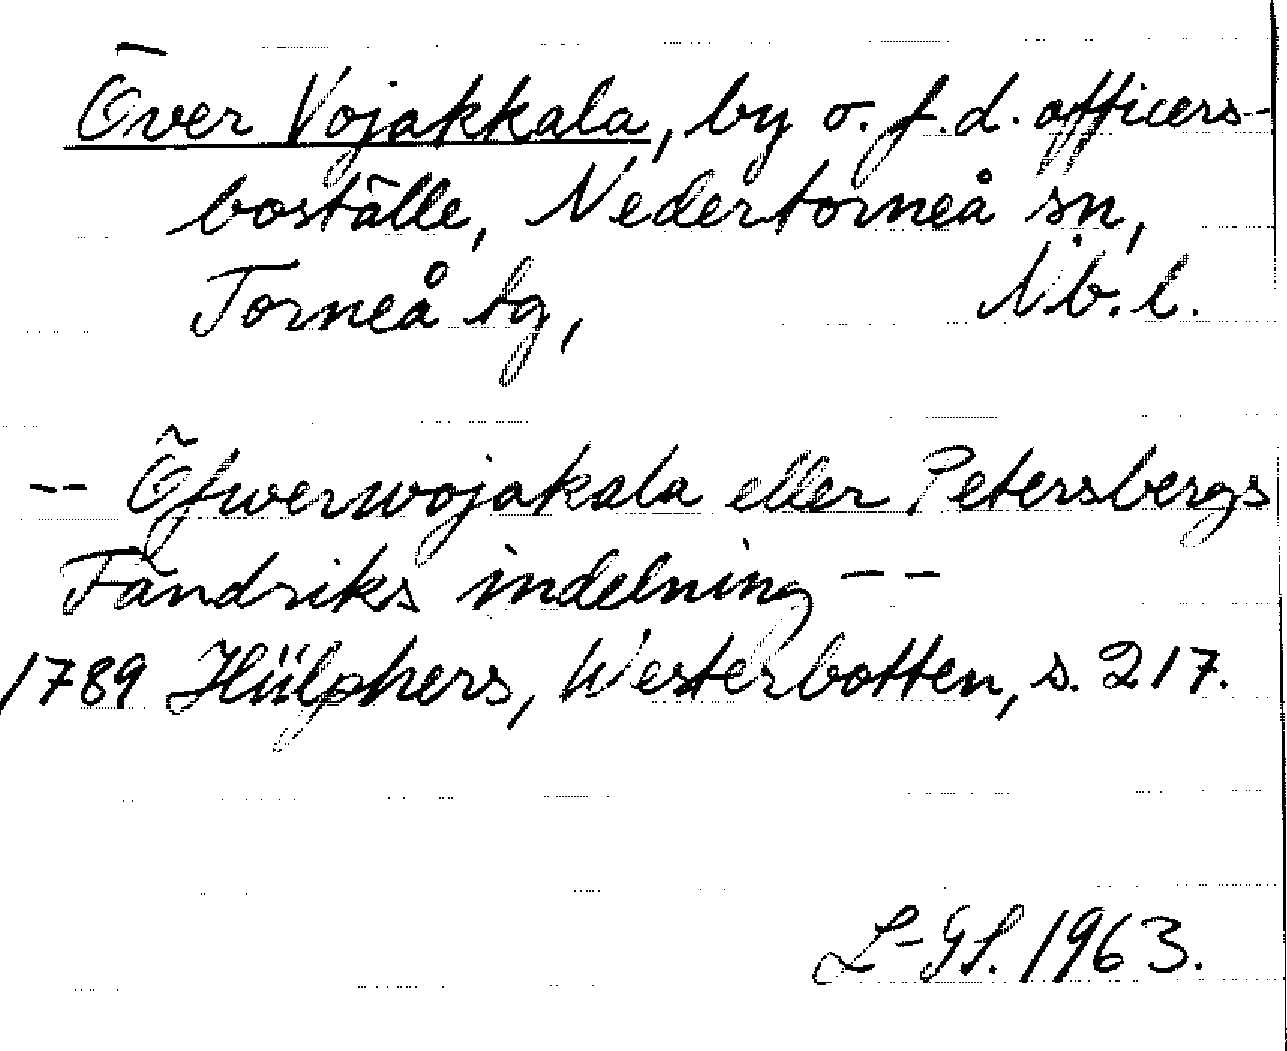 Över Vojakkala, by o. f.d. officers-
boställe, Nedertorneå sn,
Torneå tg, Nb. l.
-- Öfwerwojakala eller Petersbergs
Fändriks indelning --
1789 Hülphers, Westerbotten, s. 217.
L-GS. 1963.